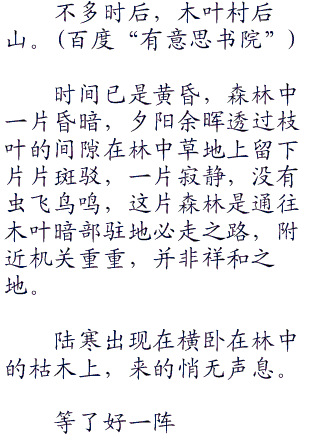 不多时后，木叶村后
山。(百度“有意思书院”)
时间已是黄昏，森林中
一片昏暗，夕阳余晖透过枝
叶的间隙在林中草地上留下
片片斑驳，一片寂静，没有
虫飞鸟鸣，这片森林是通往
木叶暗部驻地必走之路，附
近机关重重，并非祥和之
地。
陆寒出现在横卧在林中
的枯木上，来的悄无声息。
等了好一阵